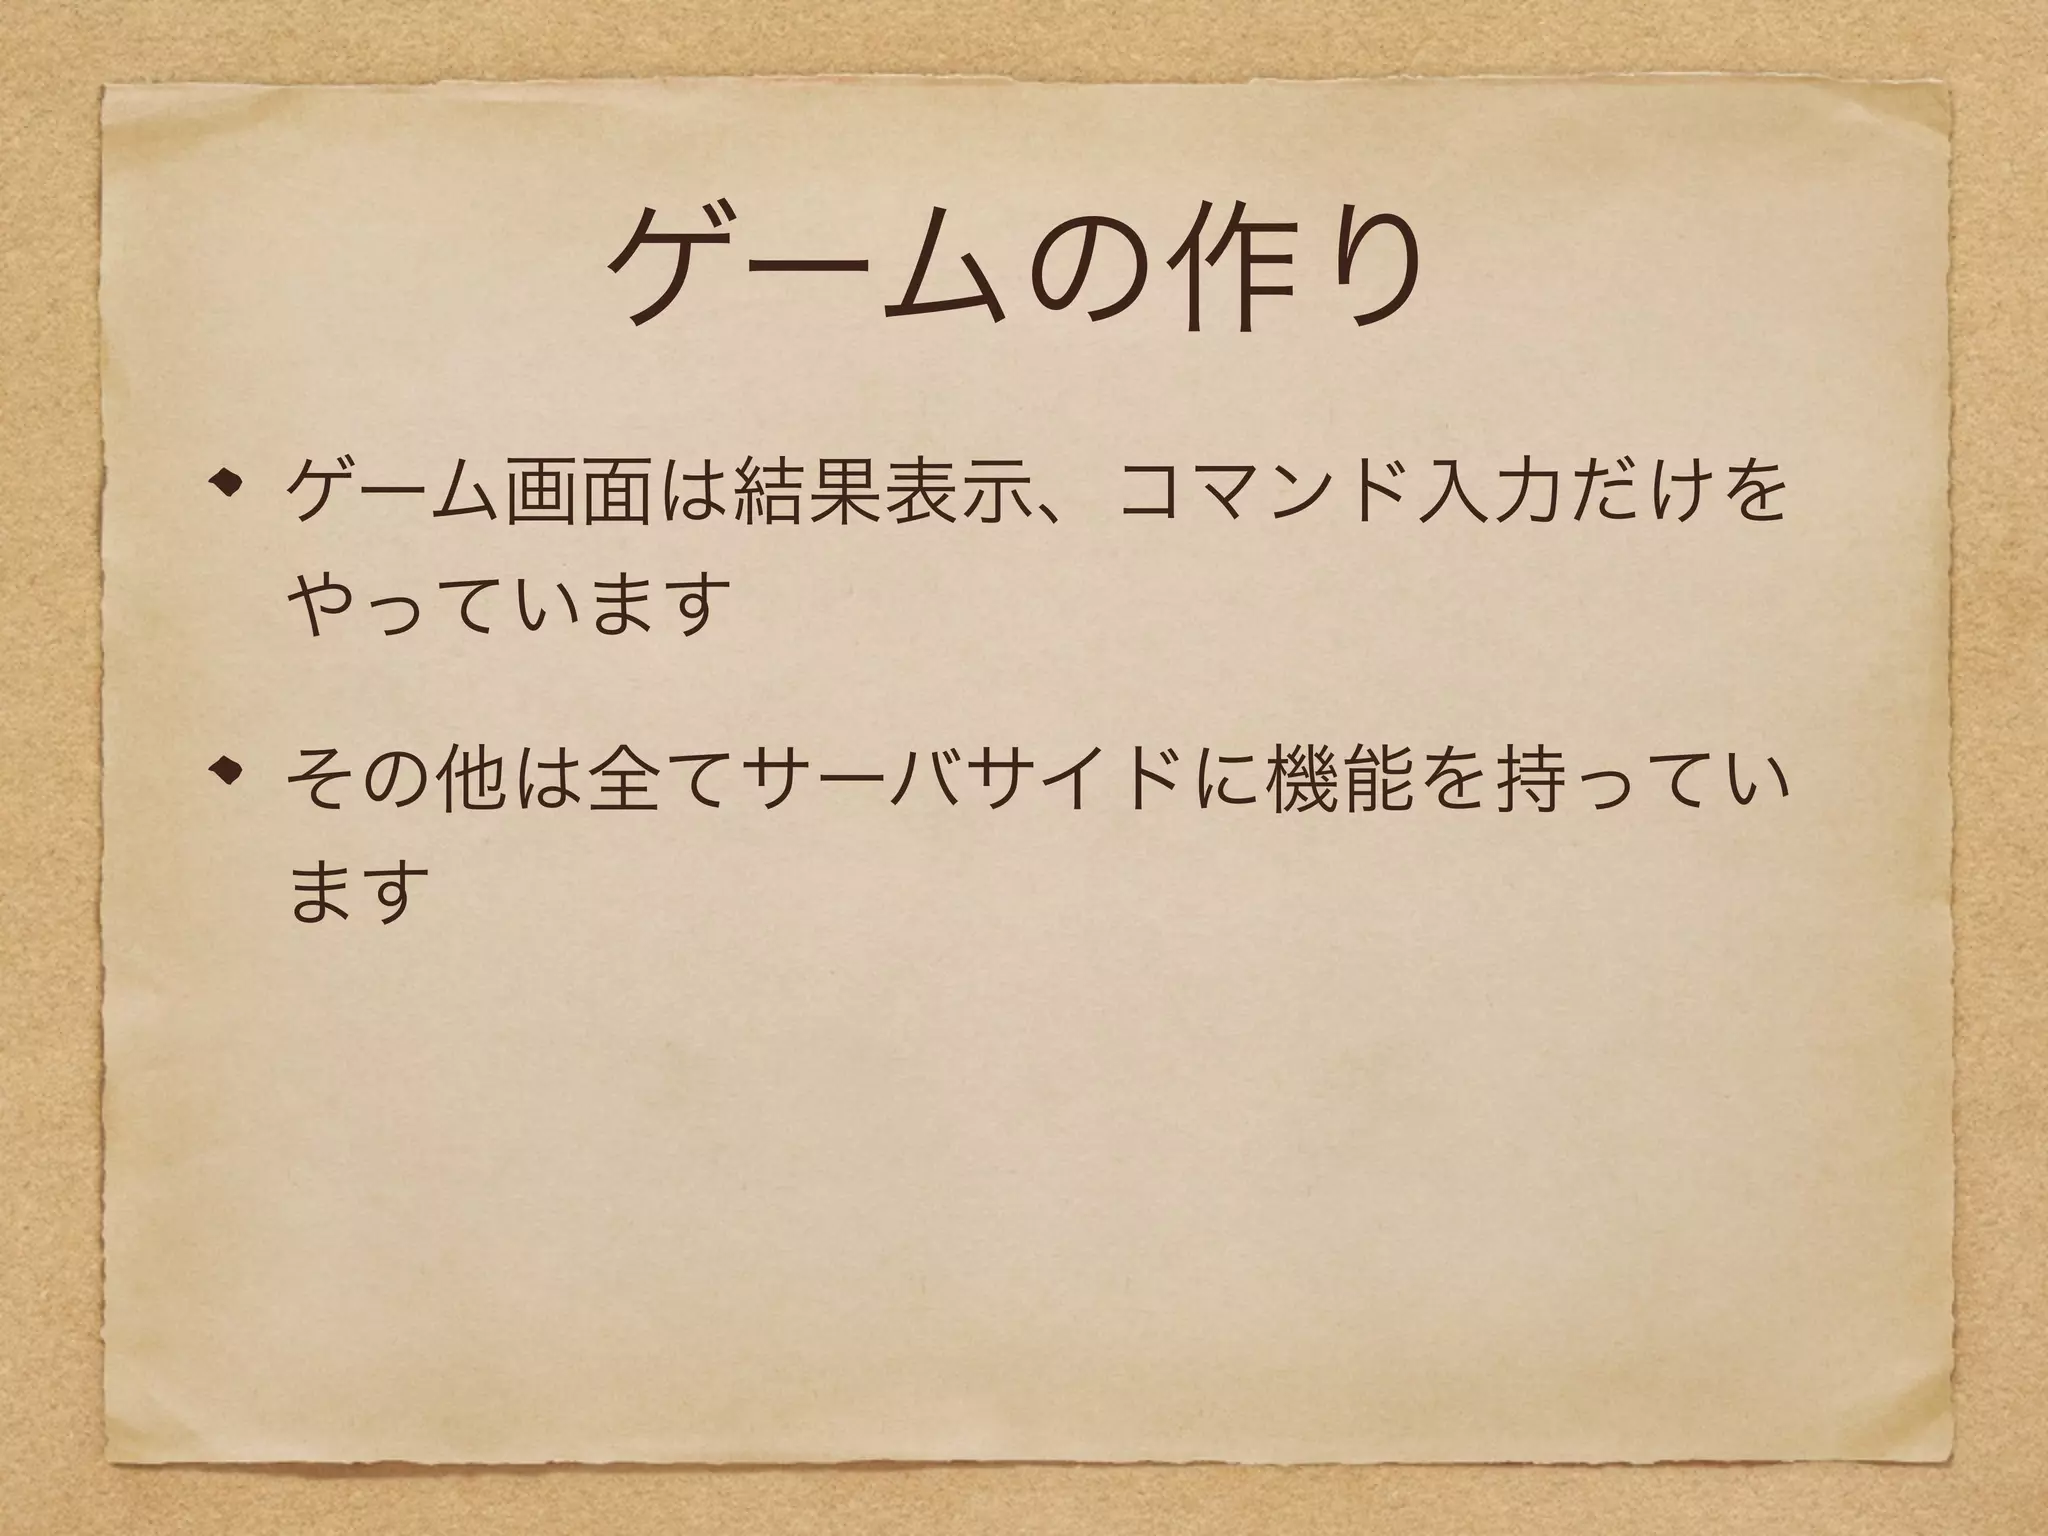 ゲームの作り
ゲーム画面は結果表示、コマンド入力だけを
やっています
その他は全てサーバサイドに機能を持ってい
ます